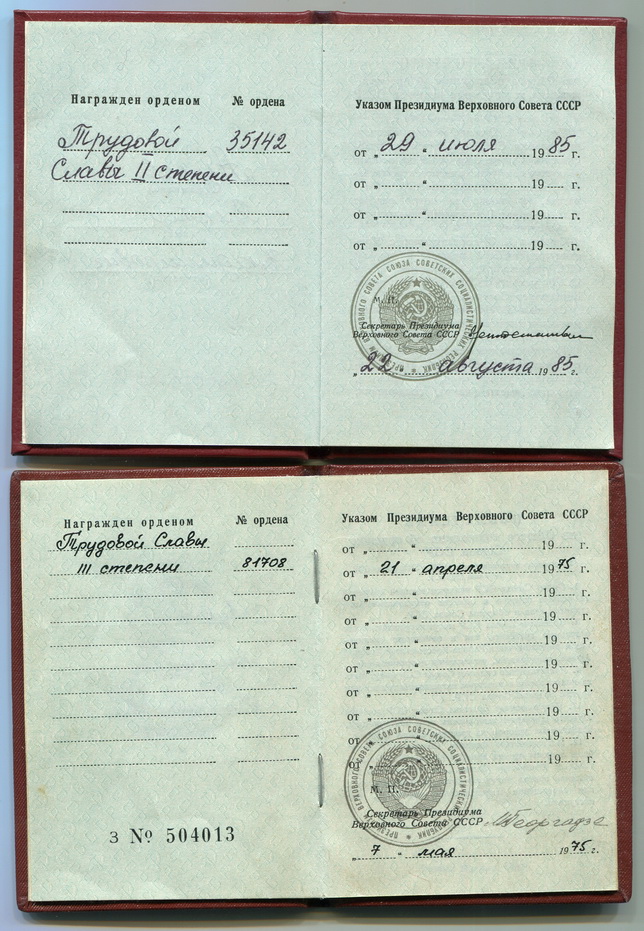 Награжден орденом № ордена
Трудовой 35142
Славы II степени
Указом Президиума Верховного Совета СССР
от „29“ июля 1985 г.
от „ “ 19 г.
от „ “ 19 г.
от „ “ 19 г.
ПРЕЗИДИУМ ВЕРХОВНОГО СОВЕТА СОЮЗА СОВЕТСКИХ СОЦИАЛИСТИЧЕСКИХ РЕСПУБЛИК
М. П.
Секретарь Президиума
Верховного Совета СССР
„22“ августа 1985 г.
Награжден орденом № ордена
Трудовой Славы
III степени 81708
З № 504013
Указом Президиума Верховного Совета СССР
от „ “ 19 г.
от „21“ апреля 1975 г.
от „ “ 19 г.
от „ “ 19 г.
от „ “ 19 г.
от „ “ 19 г.
от „ “ 19 г.
от „ “ 19 г.
от „ “ 19 г.
от „ “ 19 г.
ПРЕЗИДИУМ ВЕРХОВНОГО СОВЕТА СОЮЗА СОВЕТСКИХ СОЦИАЛИСТИЧЕСКИХ РЕСПУБЛИК
М. П.
Секретарь Президиума
Верховного Совета СССР М Георгадзе
„7“ мая 1975 г.